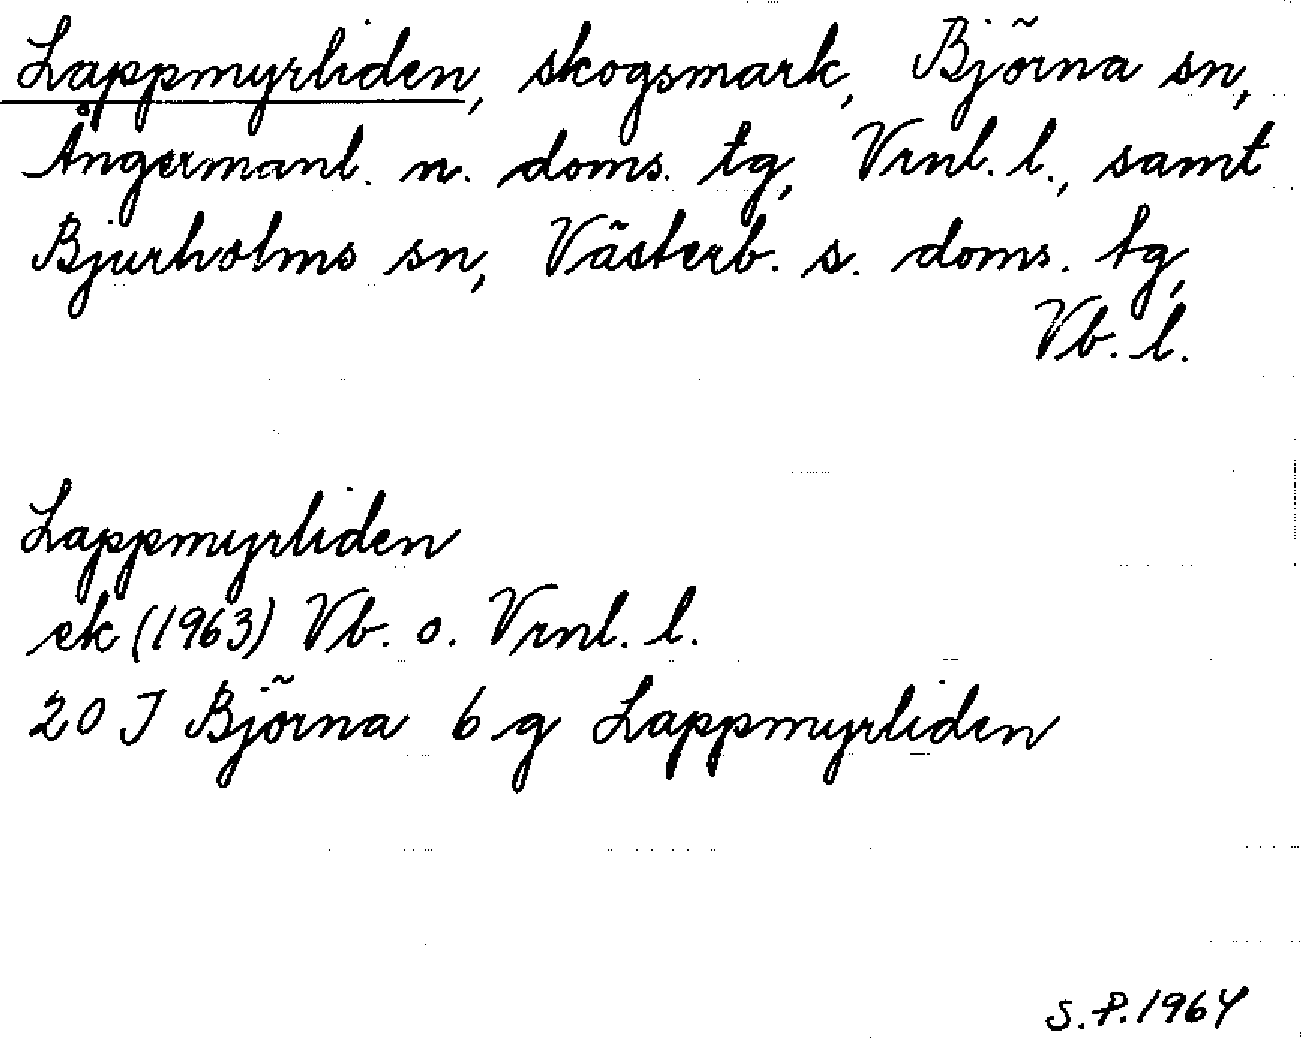 Lappmyrliden, skogsmark, Björna sn,
Ångermanl. n. doms. tg, Vrnl. l., samt
Bjurholms sn, Västerb. s. doms. tg,
Vb. l.
Lappmyrliden
ek (1963) Vb. o. Vrnl. l.
20 J Björna 6 g Lappmyrliden
S.P. 1964